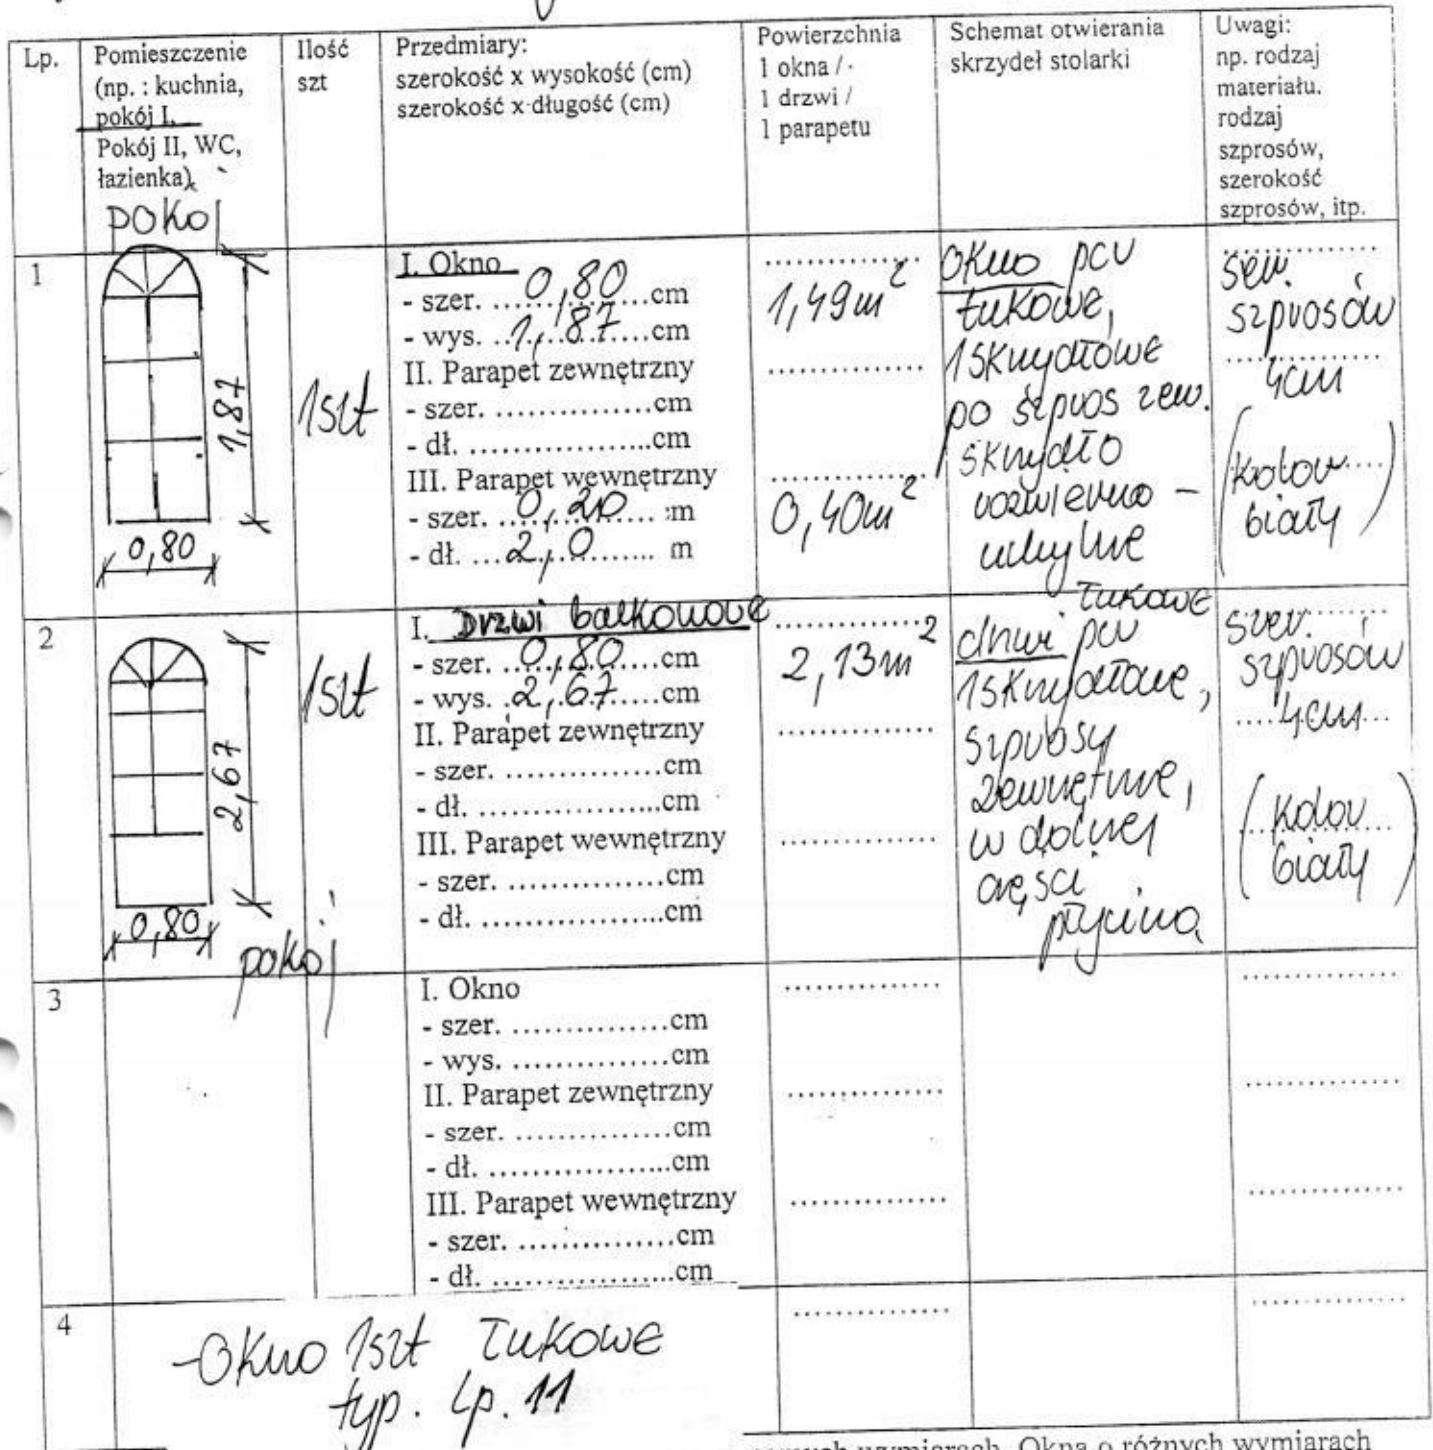 Lp.
Pomieszczenie
(np. : kuchnia,
pokój I,
Pokój II, WC,
łazienka)
Ilość
szt
Przedmiary:
szerokość x wysokość (cm)
szerokość x długość (cm)
Powierzchnia
1 okna /
1 drzwi /
1 parapetu
Schemat otwierania
skrzydeł stolarki
Uwagi:
np. rodzaj
materiału.
rodzaj
szprosów,
szerokość
szprosów, itp.
1
POKOJ
1,87
0,80
1szt
I. Okno
- szer. ...0,80...cm
- wys. ..1,87...cm
II. Parapet zewnętrzny
- szer. ...............cm
- dł. ..................cm
III. Parapet wewnętrzny
- szer. ..0,20.... :m
- dł. ...2,0........ m
...............
1,49m²
...............
...............
0,40m²
Okno pcv
łukowe,
1skrzydłowe
po szpros zew.
skrzydło
rozwierno -
uchylne
...............
szer.
szprosów
...............
4cm
(kolor....
biały)
2
2,67
0,80
pokój
1szt
I. Drzwi balkonowe
- szer. ..0,80....cm
- wys. .2,67.....cm
II. Parapet zewnętrzny
- szer. ...............cm
- dł. ..................cm
III. Parapet wewnętrzny
- szer. ...............cm
- dł. ..................cm
...............
2,13m²
...............
...............
łukowe
drzwi pcv
1skrzydłowe,
szprosy
zewnętrzne,
w dolnej
części
płycina
szer.
szprosów
....4cm...
(kolor
biały)
3
I. Okno
- szer. ...............cm
- wys. ...............cm
II. Parapet zewnętrzny
- szer. ...............cm
- dł. ..................cm
III. Parapet wewnętrzny
- szer. ...............cm
- dł. ..................cm
...............
...............
...............
...............
...............
...............
4
-Okno 1szt łukowe
typ. Lp. 11
...............
...............
wymiarach. Okna o różnych wymiarach